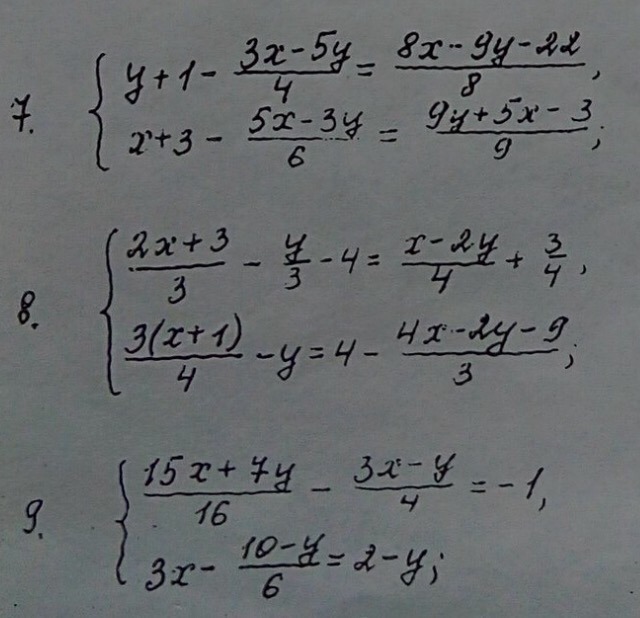 7. { y + 1 - (3x - 5y)/4 = (8x - 9y - 22)/8,
x + 3 - (5x - 3y)/6 = (9y + 5x - 3)/9;
8. { (2x + 3)/3 - y/3 - 4 = (x - 2y)/4 + 3/4,
3(x + 1)/4 - y = 4 - (4x - 2y - 9)/3;
9. { (15x + 7y)/16 - (3x - y)/4 = -1,
3x - (10 - y)/6 = 2 - y;